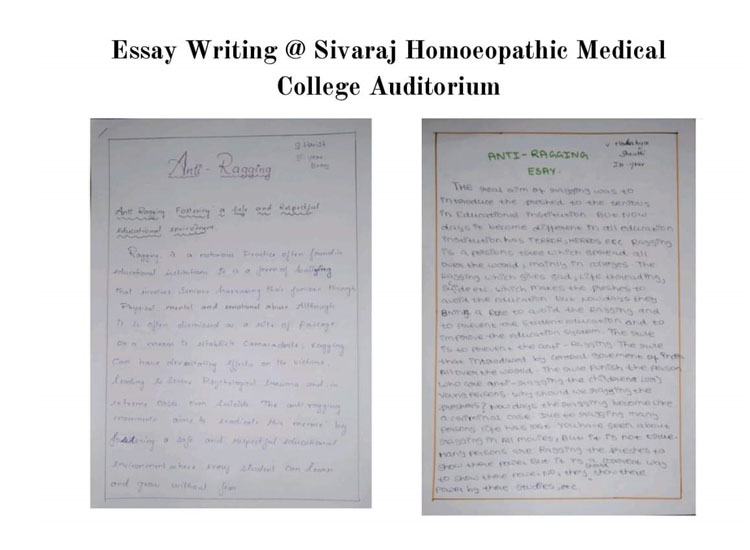 Essay Writing @ Sivaraj Homoeopathic Medical
College Auditorium
Anti - Ragging
Anti Ragging Fostering a Safe and Respectful
educational
Ragging is a notorious Practice often found in
educational It is a form of bullying
that involves Seniors harassing their juniors through
Physical mental and emotional abuse Although
it is often dismissed as a rite of Passage
Or a means to establish Camaraderie, Ragging
Can have devastating effects on its victims,
leading to Severe Psychological trauma and in
extreme cases even Suicide The anti ragging
movement aims to eradicate this by
fostering a safe and respectful educational
environment where every student can learn
and grow without fear
ANTI-RAGGING
ESAY.
THE aim of ragging was to
introduce the freshers to the seniors
in Educational Institution BUT NOW
days to become different in all education
Institution has TERROR, Ragging
is a which spread all
over the world, mainly in colleges. The
Ragging which gives
which makes the freshers to
avoid the education but nowdays they
Bring a rule to avoid the Ragging and
to prevent the student education and to
improve the education system. The rule
is to prevent the anti-Ragging. The rule
that introduced by of
all over the world. The rule punish the person
who anti-ragging the
young persons. why should we ragging the
freshers? Now days the ragging become like
a criminal case. Due to ragging many
persons life has You have seen about
ragging in All movies, But it is not
many persons are Ragging the freshers to
show there power But it is a way
to show there power. they show there
Power by there studies, etc.